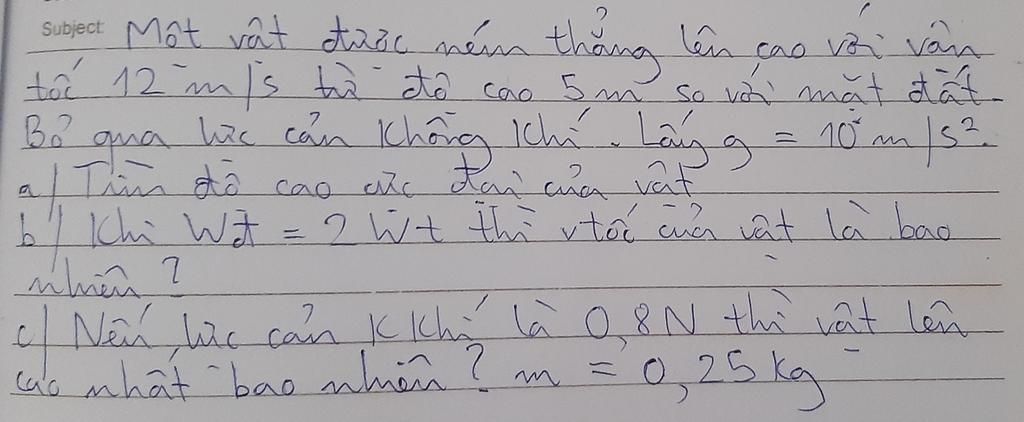 Subject Một vật được ném thẳng lên cao với vận
tốc 12 m/s từ độ cao 5m so với mặt đất.
Bỏ qua lực cản không khí. Lấy g = 10 m/s².
a/ Tìm độ cao cực đại của vật
b/ Khi Wđ = 2 Wt thì vtốc của vật là bao
nhiêu?
c/ Nếu lực cản KKhí là 0,8N thì vật lên
cao nhất bao nhiêu? m = 0,25kg